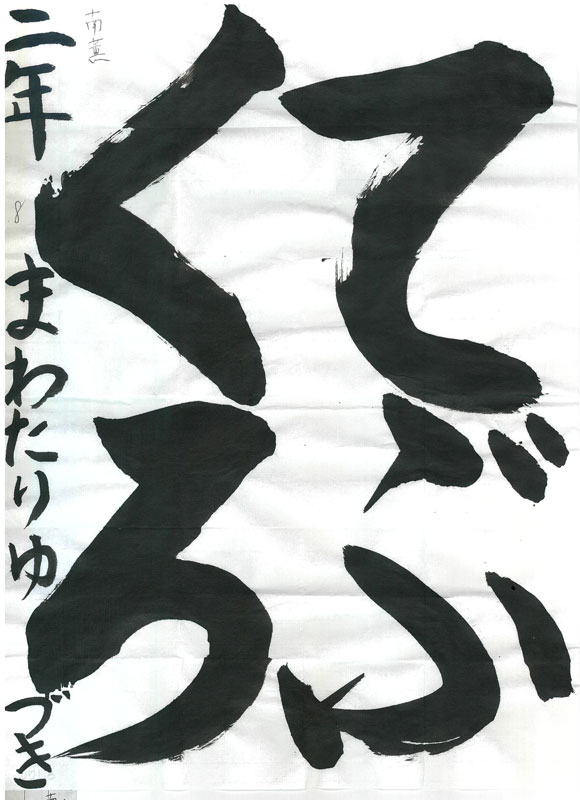 てぶ
くろ
二年 まわたりゆづき
南薫
8